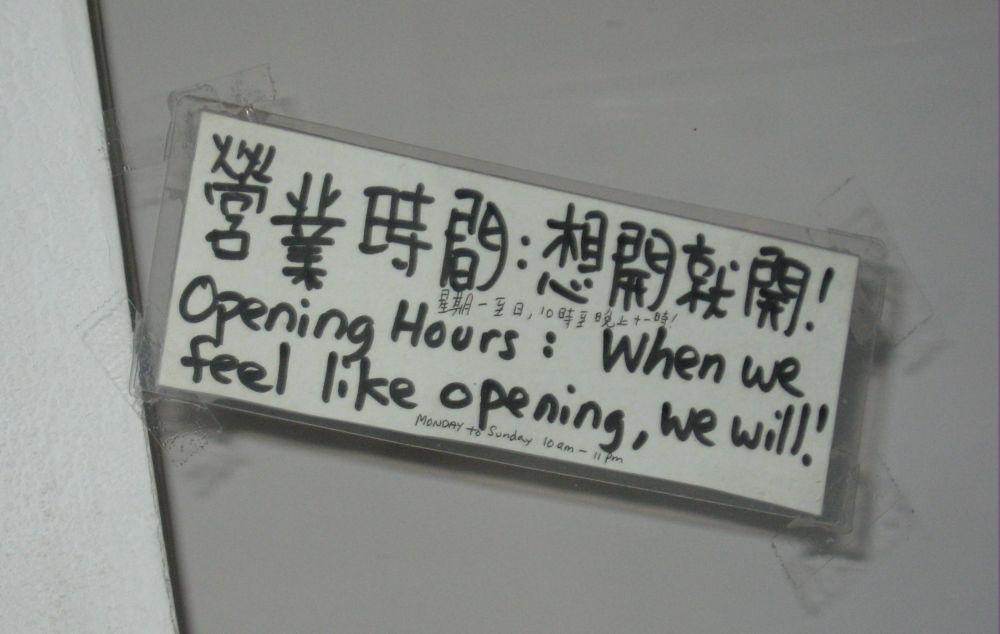 營業時間:想開就開!
星期一至日,10時至晚上十一時!
Opening Hours: When we
feel like opening, we will!
MONDAY to Sunday 10am - 11pm